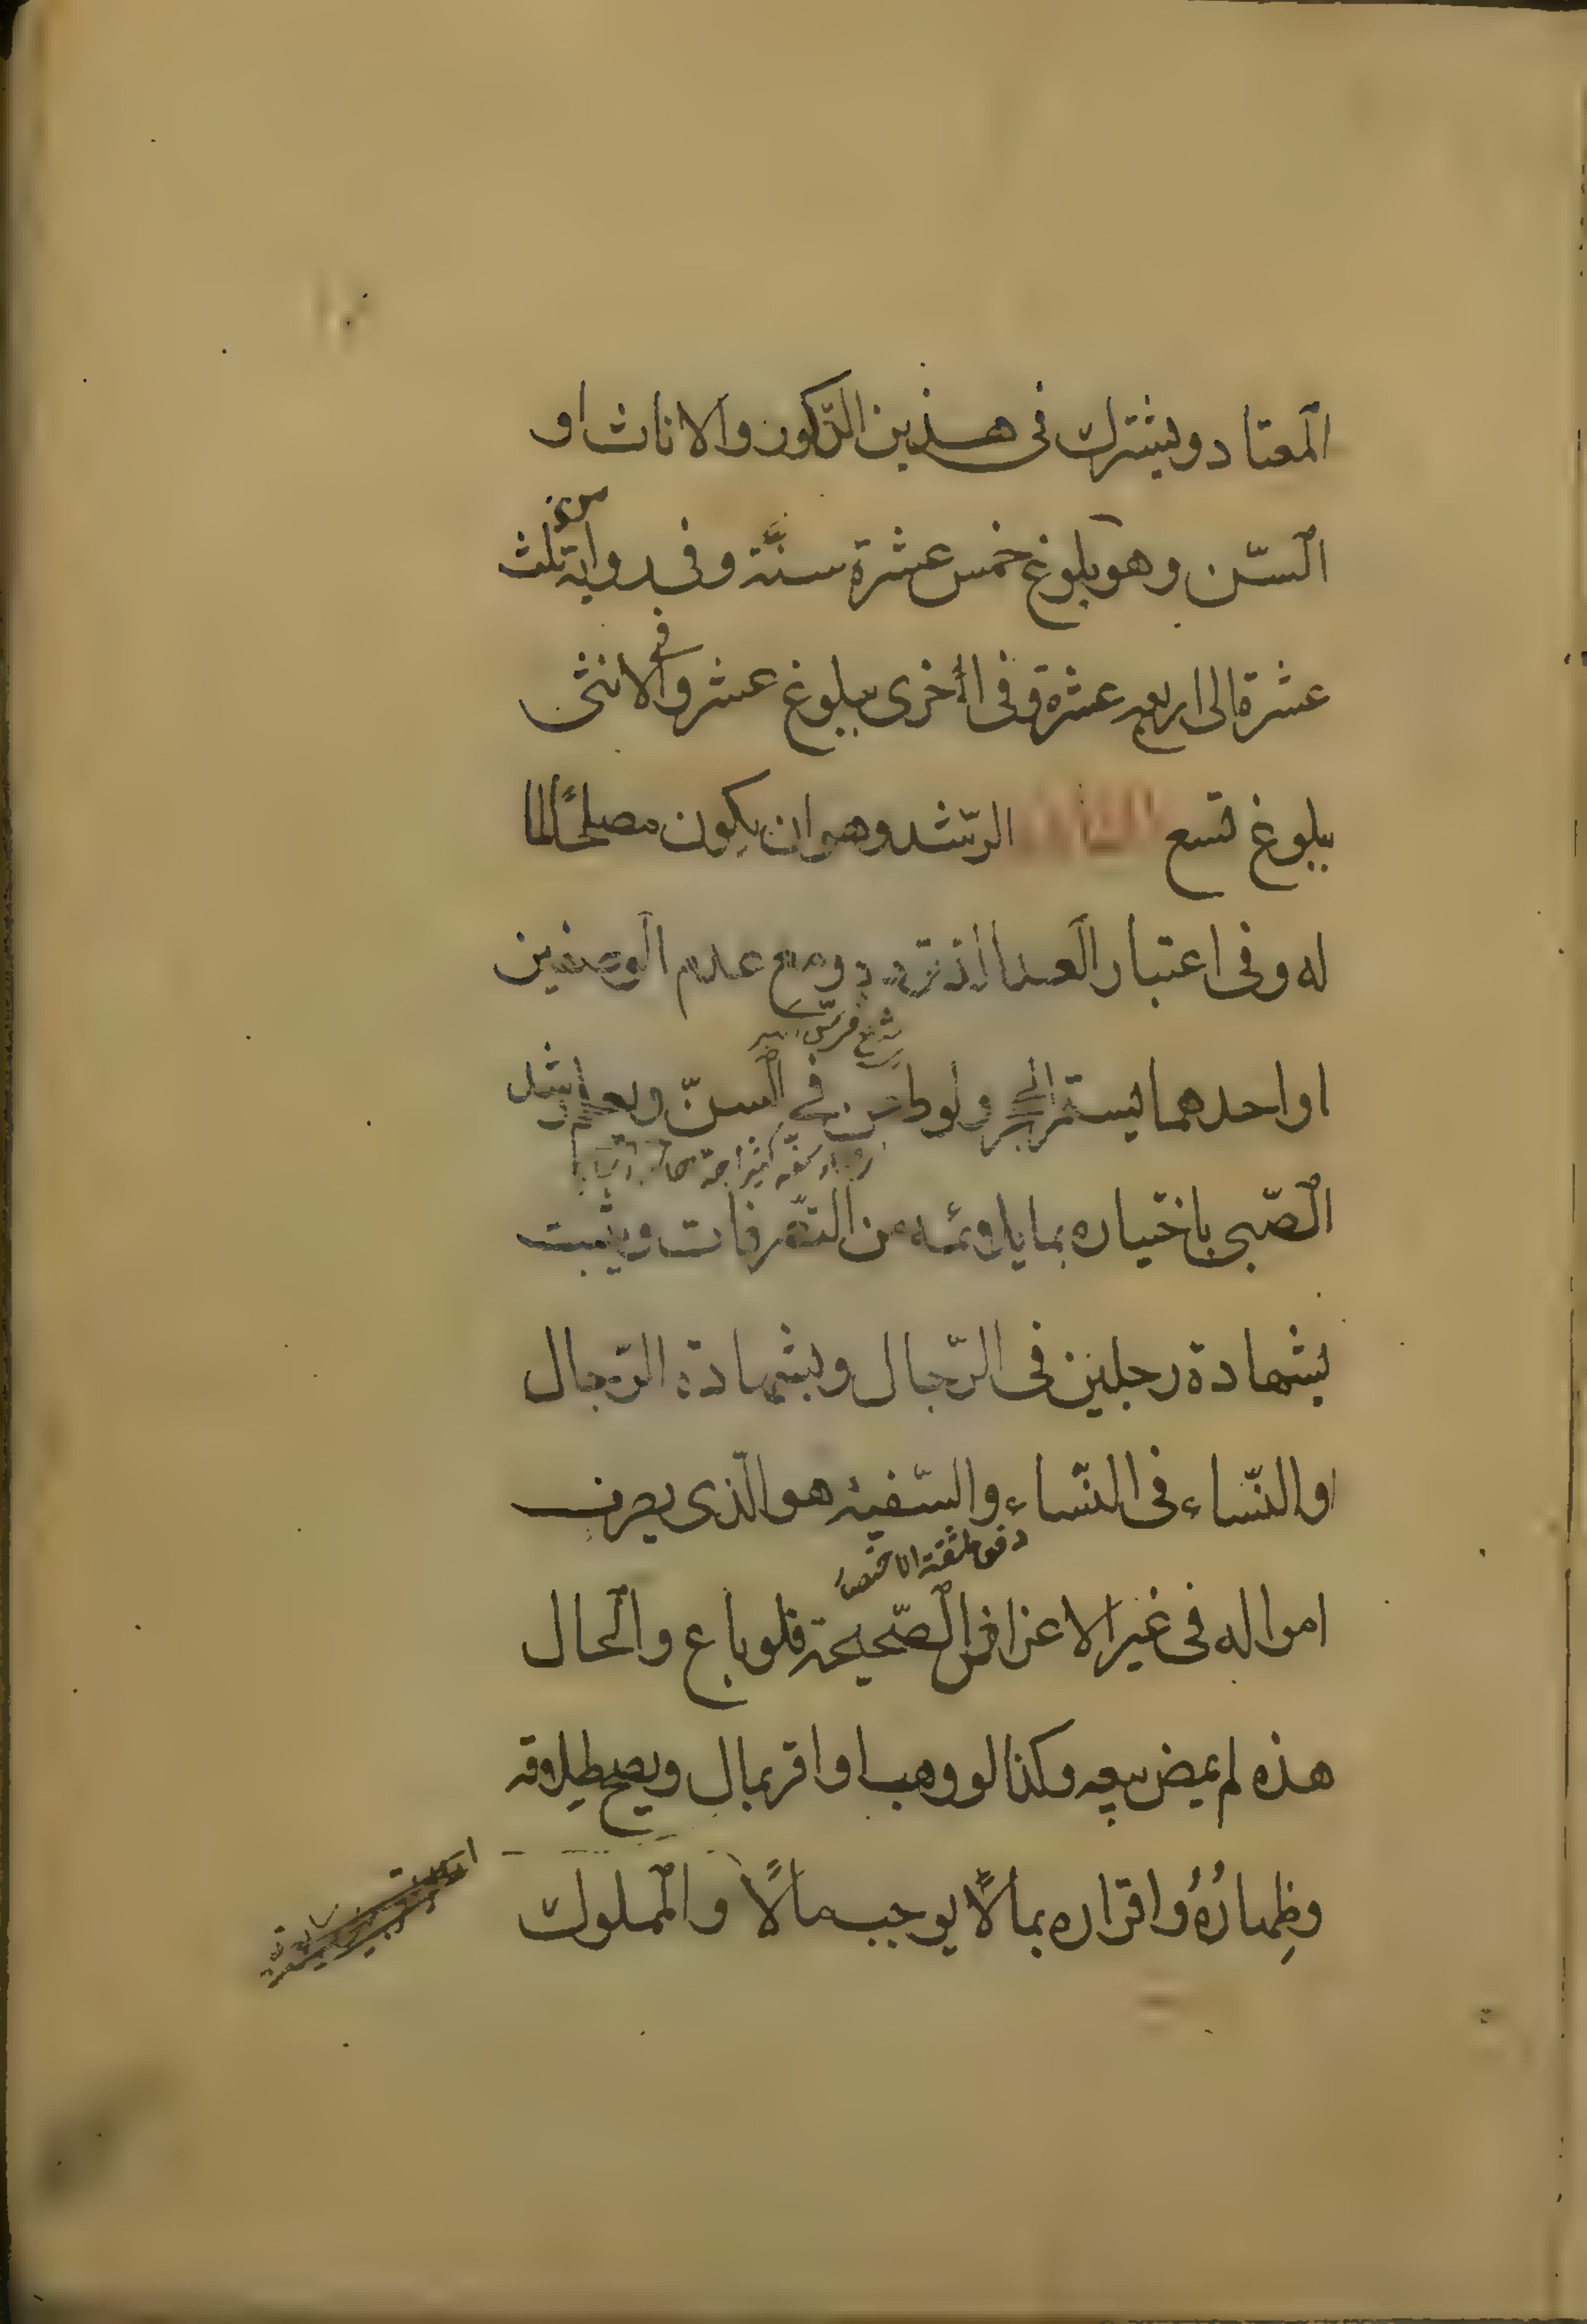 المعتاد ويشترك فى هذين الذّكور والاناث او
السّن وهو بلوغ خمس عشرة سنّة وفى رواية من ثلث
عشرة الى اربعه عشرة وفى اُخرى ببلوغ عشر وفى الانثى
ببلوغ تسع الثانى الرّشد وهو ان يكون مصلحًا لما
له وفى اعتبار العدالة تردد ومع عدم الوصفين
او احدهما يستمر الحجر ولو طعن فى السنّ ويعلم رشد
الصّبى باختياره بما يلائمه من التصّرفات ويثبت
بشهادة رجلين فى الرّجال وبشهادة الرّجال
والنّساء فى النّساء والسّفيه هو الّذى يصرف
امواله فى غير الاغراض الصّحيحة فلو باع والحال
هذه لم يمض بيعه وكذا لو وهب او اقر بمال ويصح طلاقه
وظِهارُهُ واقراره بما لا يوجب مالًا والمملوك